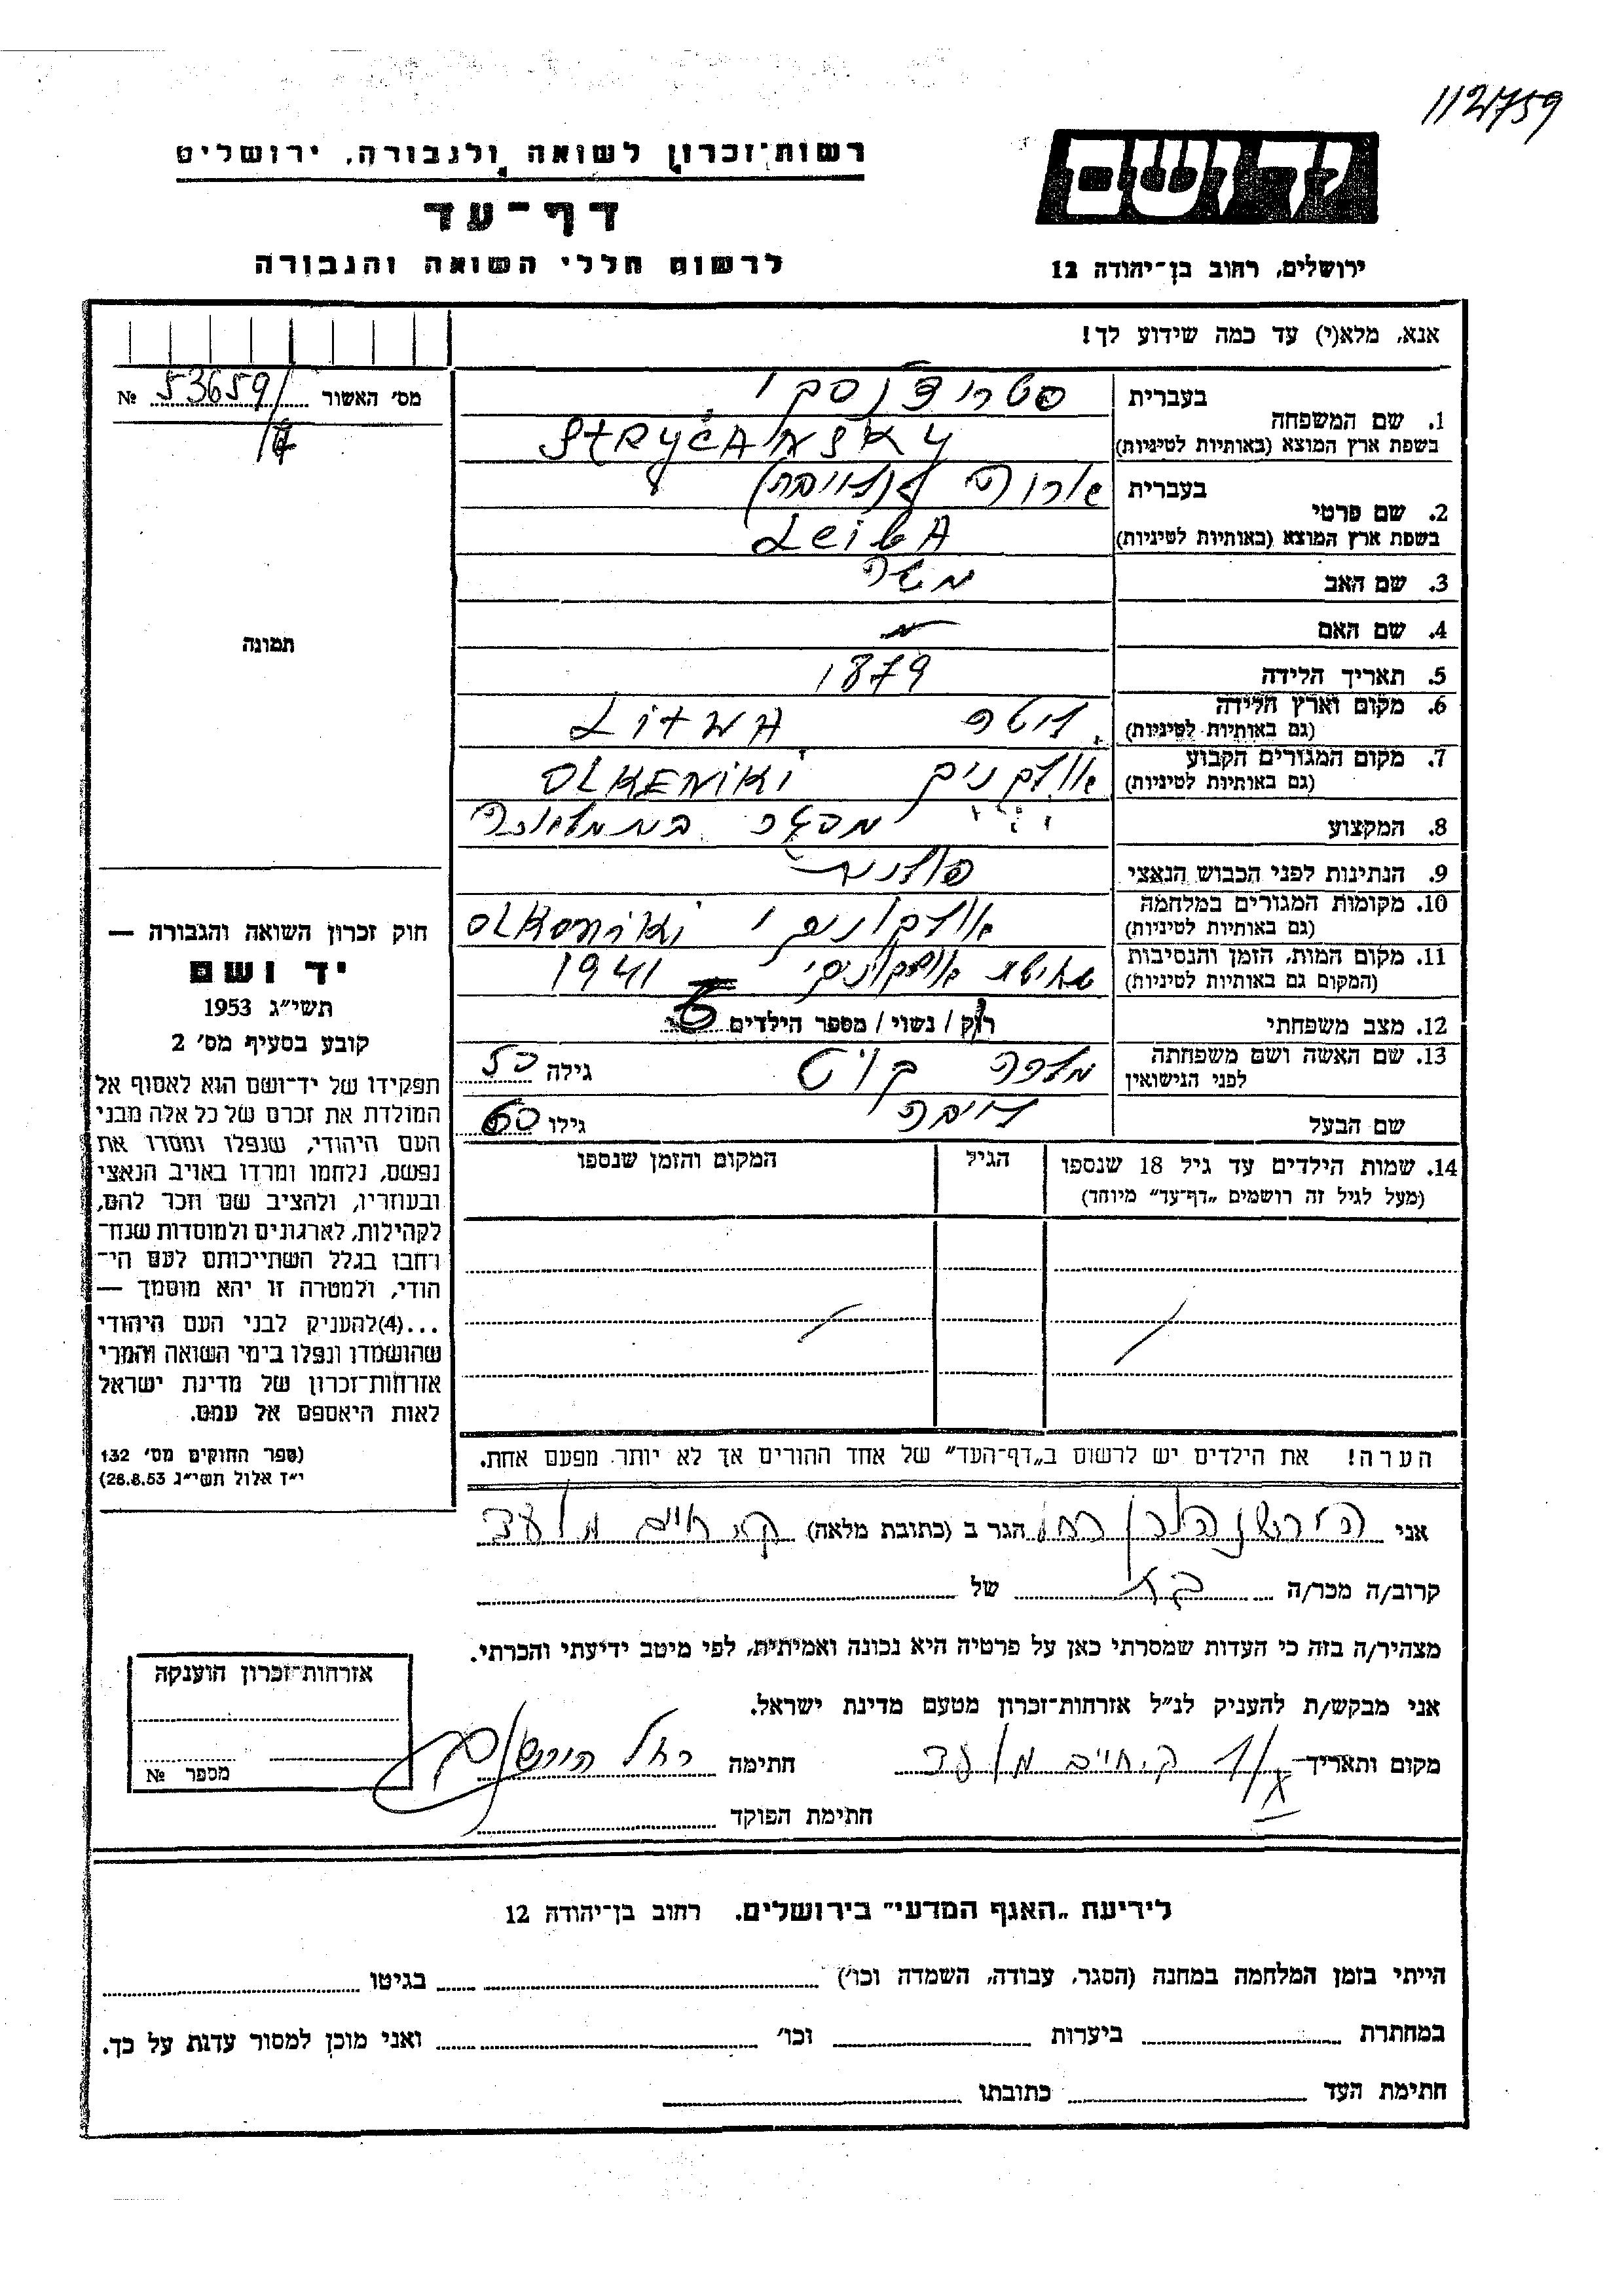 112759
רשות־זכרון לשואה ולגבורה, ירושלים
דף־עד
לרשום חללי השואה והגבורה
יד ושם
ירושלים, רחוב בן־יהודה 12
אנא, מלא(י) עד כמה שידוע לך!
מס׳ האשור 53659/ №
1. שם המשפחה
בעברית
בשפת ארץ המוצא (באותיות לטיניות) StRyćAnSKy
2. שם פרטי
בעברית
בשפת ארץ המוצא (באותיות לטיניות) LeibA
3. שם האב משה
4. שם האם
5. תאריך הלידה 1879
6. מקום וארץ הלידה
(גם באותיות לטיניות) ליטה LitwA
7. מקום המגורים הקבוע
(גם באותיות לטיניות) OLKENiKi
8. המקצוע
9. הנתינות לפני הכבוש הנאצי
10. מקומות המגורים במלחמה
(גם באותיות לטיניות) OLKeniKi
11. מקום המות, הזמן והנסיבות
(המקום גם באותיות לטיניות) 1941
12. מצב משפחתי רוק / נשוי / מספר הילדים
13. שם האשה ושם משפחתה
לפני הנישואין מלכה גילה 50
שם הבעל ליבה גילו 60
14. שמות הילדים עד גיל 18 שנספו
(מעל לגיל זה רושמים „דף־עד״ מיוחד)
הגיל
המקום והזמן שנספו
הערה! את הילדים יש לרשום ב„דף־העד״ של אחד ההורים אך לא יותר מפעם אחת.
תמונה
חוק זכרון השואה והגבורה —
יד ושם
תשי״ג 1953
קובע בסעיף מס׳ 2
תפקידו של יד־ושם הוא לאסוף אל
המולדת את זכרם של כל אלה מבני
העם היהודי, שנפלו ומסרו את
נפשם, נלחמו ומרדו באויב הנאצי
ובעוזריו, ולהציב שם וזכר להם,
לקהילות, לארגונים ולמוסדות שנח־
רבו בגלל השתייכותם לעם הי־
הודי, ולמטרה זו יהא מוסמך —
...(4)להעניק לבני העם היהודי
שהושמדו ונפלו בימי השואה והמרי
אזרחות־זכרון של מדינת ישראל
לאות היאספם אל עמם.
(ספר החוקים מס׳ 132
י״ד אלול תשי״ג 28.8.53)
אני הירשנהורן רחל הגר ב (כתובת מלאה) ק. חיים מועד
קרוב/ה מכר/ה בת של
מצהיר/ה בזה כי העדות שמסרתי כאן על פרטיה היא נכונה ואמיתית, לפי מיטב ידיעתי והכרתי.
אני מבקש/ת להעניק לנ״ל אזרחות־זכרון מטעם מדינת ישראל.
מקום ותאריך ק. חיים מועד חתימה רחל
חתימת הפוקד
אזרחות־זכרון הוענקה
מספר №
לידיעת „האגף המדעי״ בירושלים. רחוב בן־יהודה 12
הייתי בזמן המלחמה במחנה (הסגר, עבודה, השמדה וכו׳) בגיטו
במחתרת ביערות וכו׳ ואני מוכן למסור עדות על כך.
חתימת העד כתובתו